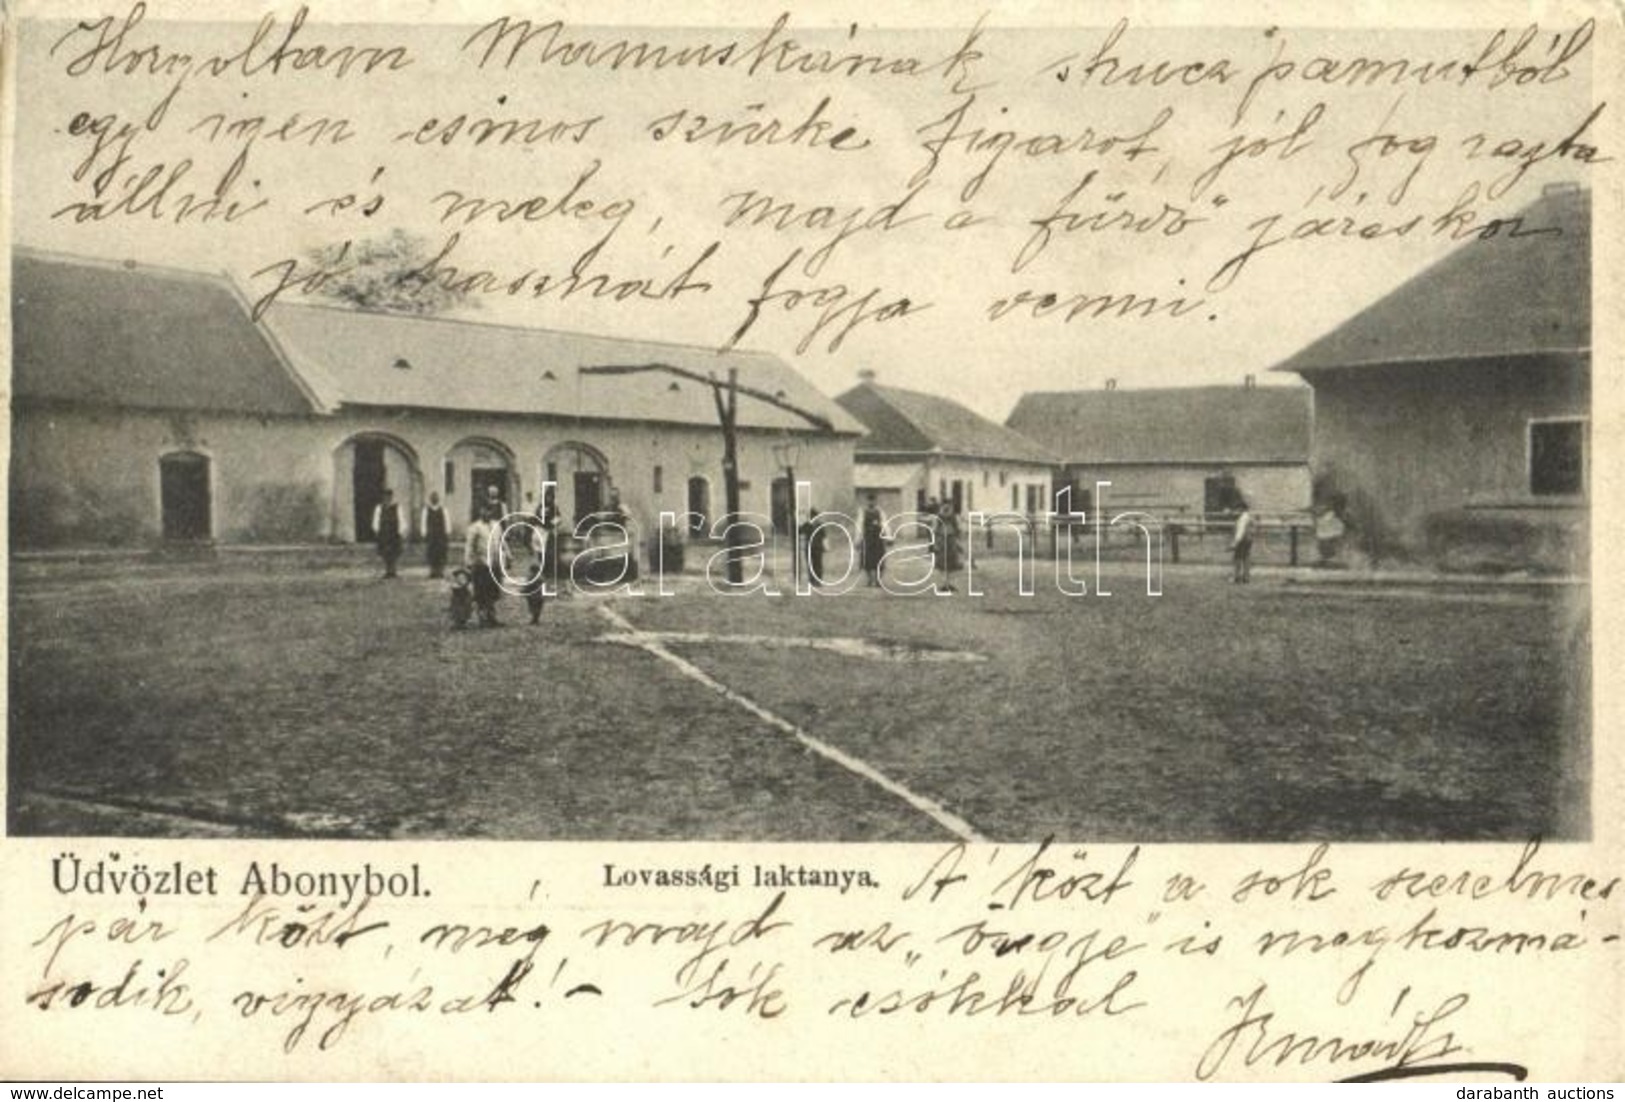 Horgoltam Mamuskának stucz pamutból
egy igen csinos szürke figarot, jól fog rajta
állni és meleg, majd a fürdő járáskor
jó hasznát fogja venni.
darabanth
Üdvözlet Abonybol. Lovassági laktanya. A' közt a sok szerelmes
pár közt, még majd az „özvegye” is megkozmá-
sodik, vigyázat! - Sok csókkal
darabanth auctions